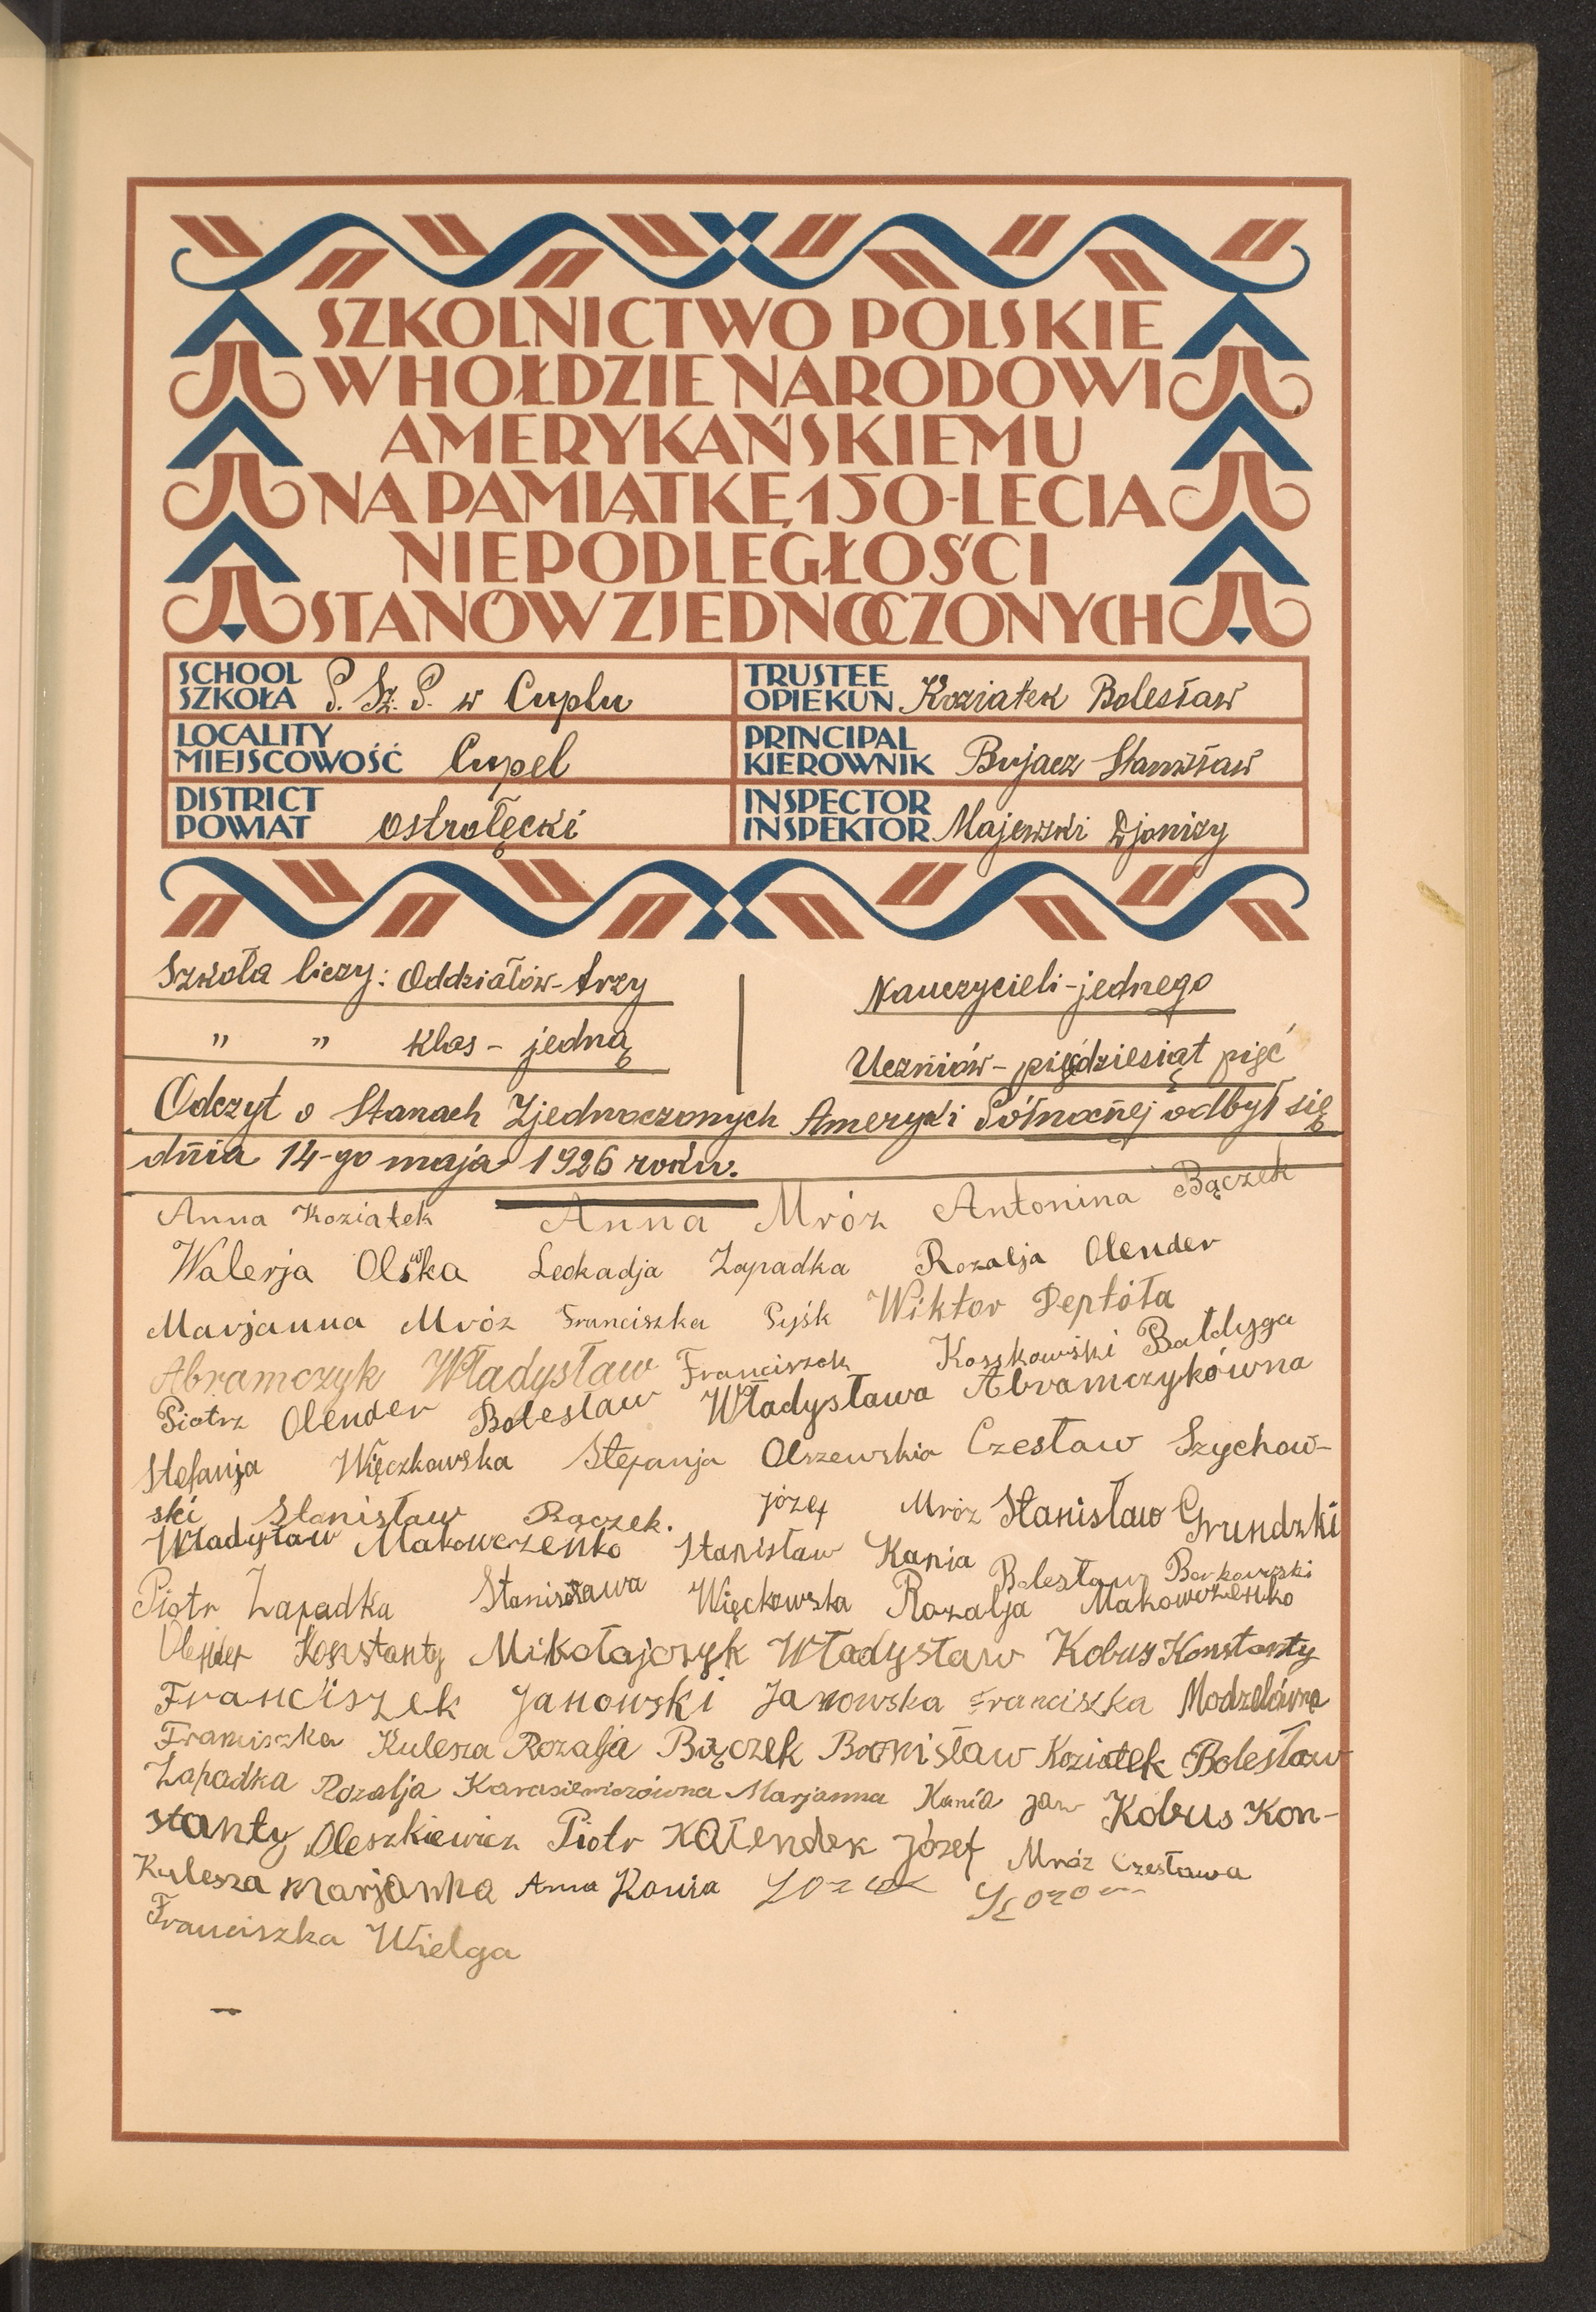 SZKOLNICTWO POLSKIE
W HOŁDZIE NARODOWI
AMERYKAŃSKIEMU
NA PAMIĄTKĘ 150-LECIA
NIEPODLEGŁOŚCI
STANÓW ZJEDNOCZONYCH
SCHOOL
SZKOŁA P. Sz. P. w Cuplu
TRUSTEE
OPIEKUN Koziatek Bolesław
LOCALITY
MIEJSCOWOŚĆ Cupel
PRINCIPAL
KIEROWNIK Bujacz Stanisław
DISTRICT
POWIAT ostrołęcki
INSPECTOR
INSPEKTOR Majewski Djonizy
Szkoła liczy: Oddziałów - trzy
" " klas - jedną
Nauczycieli - jednego
Uczniów - pięćdziesiąt pięć
Odczyt o Stanach Zjednoczonych Ameryki Północnej odbył się
dnia 14-go maja 1926 roku.
Anna Koziatek Anna Mróz Antonina Bączek
Walerja Olska Leokadja Zapadka Rozalja Olender
Marjanna Mróz Franciszka Pyśk Wiktor Deptóła
Abramczyk Władysław Franciszek Kosskowski Bałdyga
Piotrz Olender Bolesław Władysława Abramczykówna
Stefanja Więczkowska Stefanja Olszewska Czesław Szychow-
ski Stanisław Bączek. józef Mróz Stanisław Grundzki
Władysław Makowczeńko Stanisław Kania Bolesław Borkowski
Piotr Zapadka Stanisława Więckowska Rozalja Makowczeńko
Olender Konstanty Mikołajczyk Władysław Kobus Konstanty
Franciszek Janowski Janowska Franciszka Modzelówna
Franciszka Kulesza Rozalja Bączek Bronisław Koziatek Bolesław
Zapadka Rozalja Karasiewiczówna Marjanna Kania jan Kobus Kon-
stanty Oleszkiewicz Piotr Józef Mróz Czesława
Kulesza marjanna Anna Kania
Franciszka Wielga